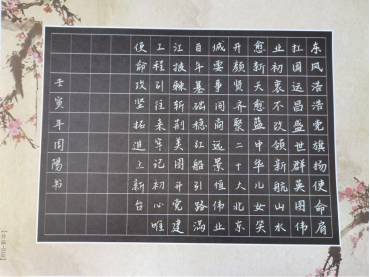 东风浩浩党旗扬使命肩
扛国运昌盛世群英图伟
业初衷不改领新航山水
愈新天愈蓝中华儿女笑
开颜贤齐聚二十大北京
城要事商远景恒伟业
百年基础稳红船引路满
江披棘斩荆美图开党建
工程引往来牢记初心唯
使命攻坚拓进上新台
壬寅年周阳书